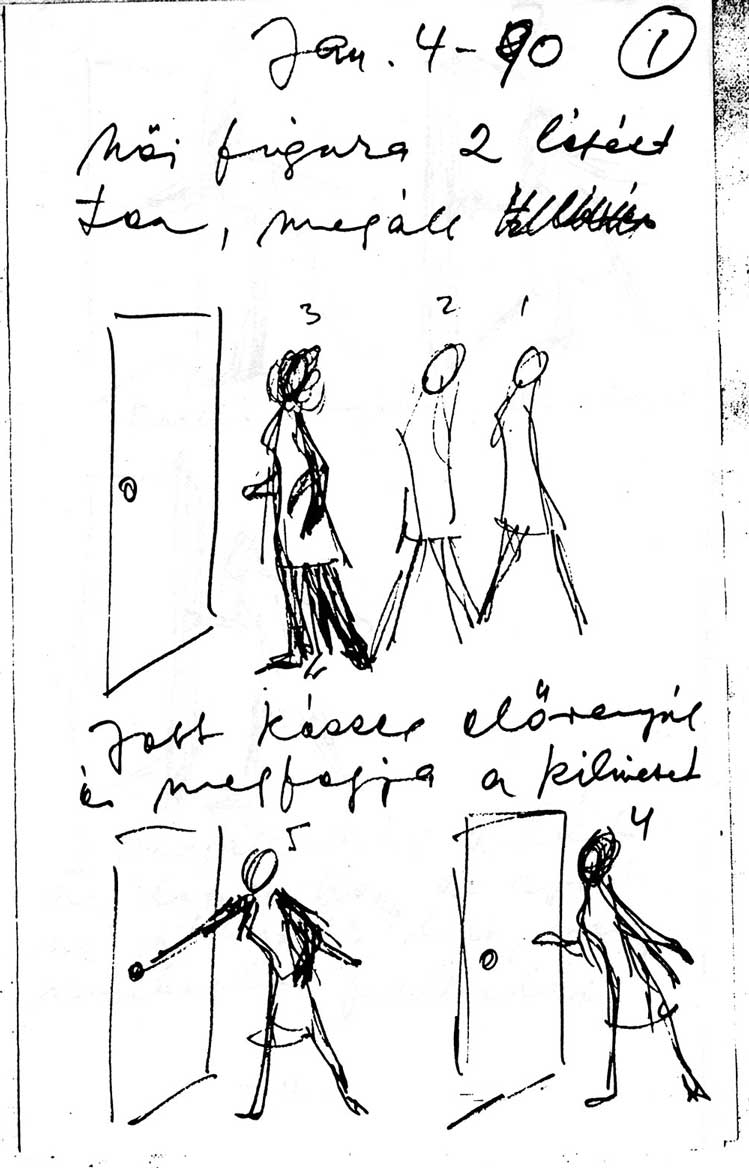 Jan. 4-90 1
Női figura 2 lépést
tesz, megáll
3 2 1
Jobb kézzel előrenyúl
és megfogja a kilincset
5 4